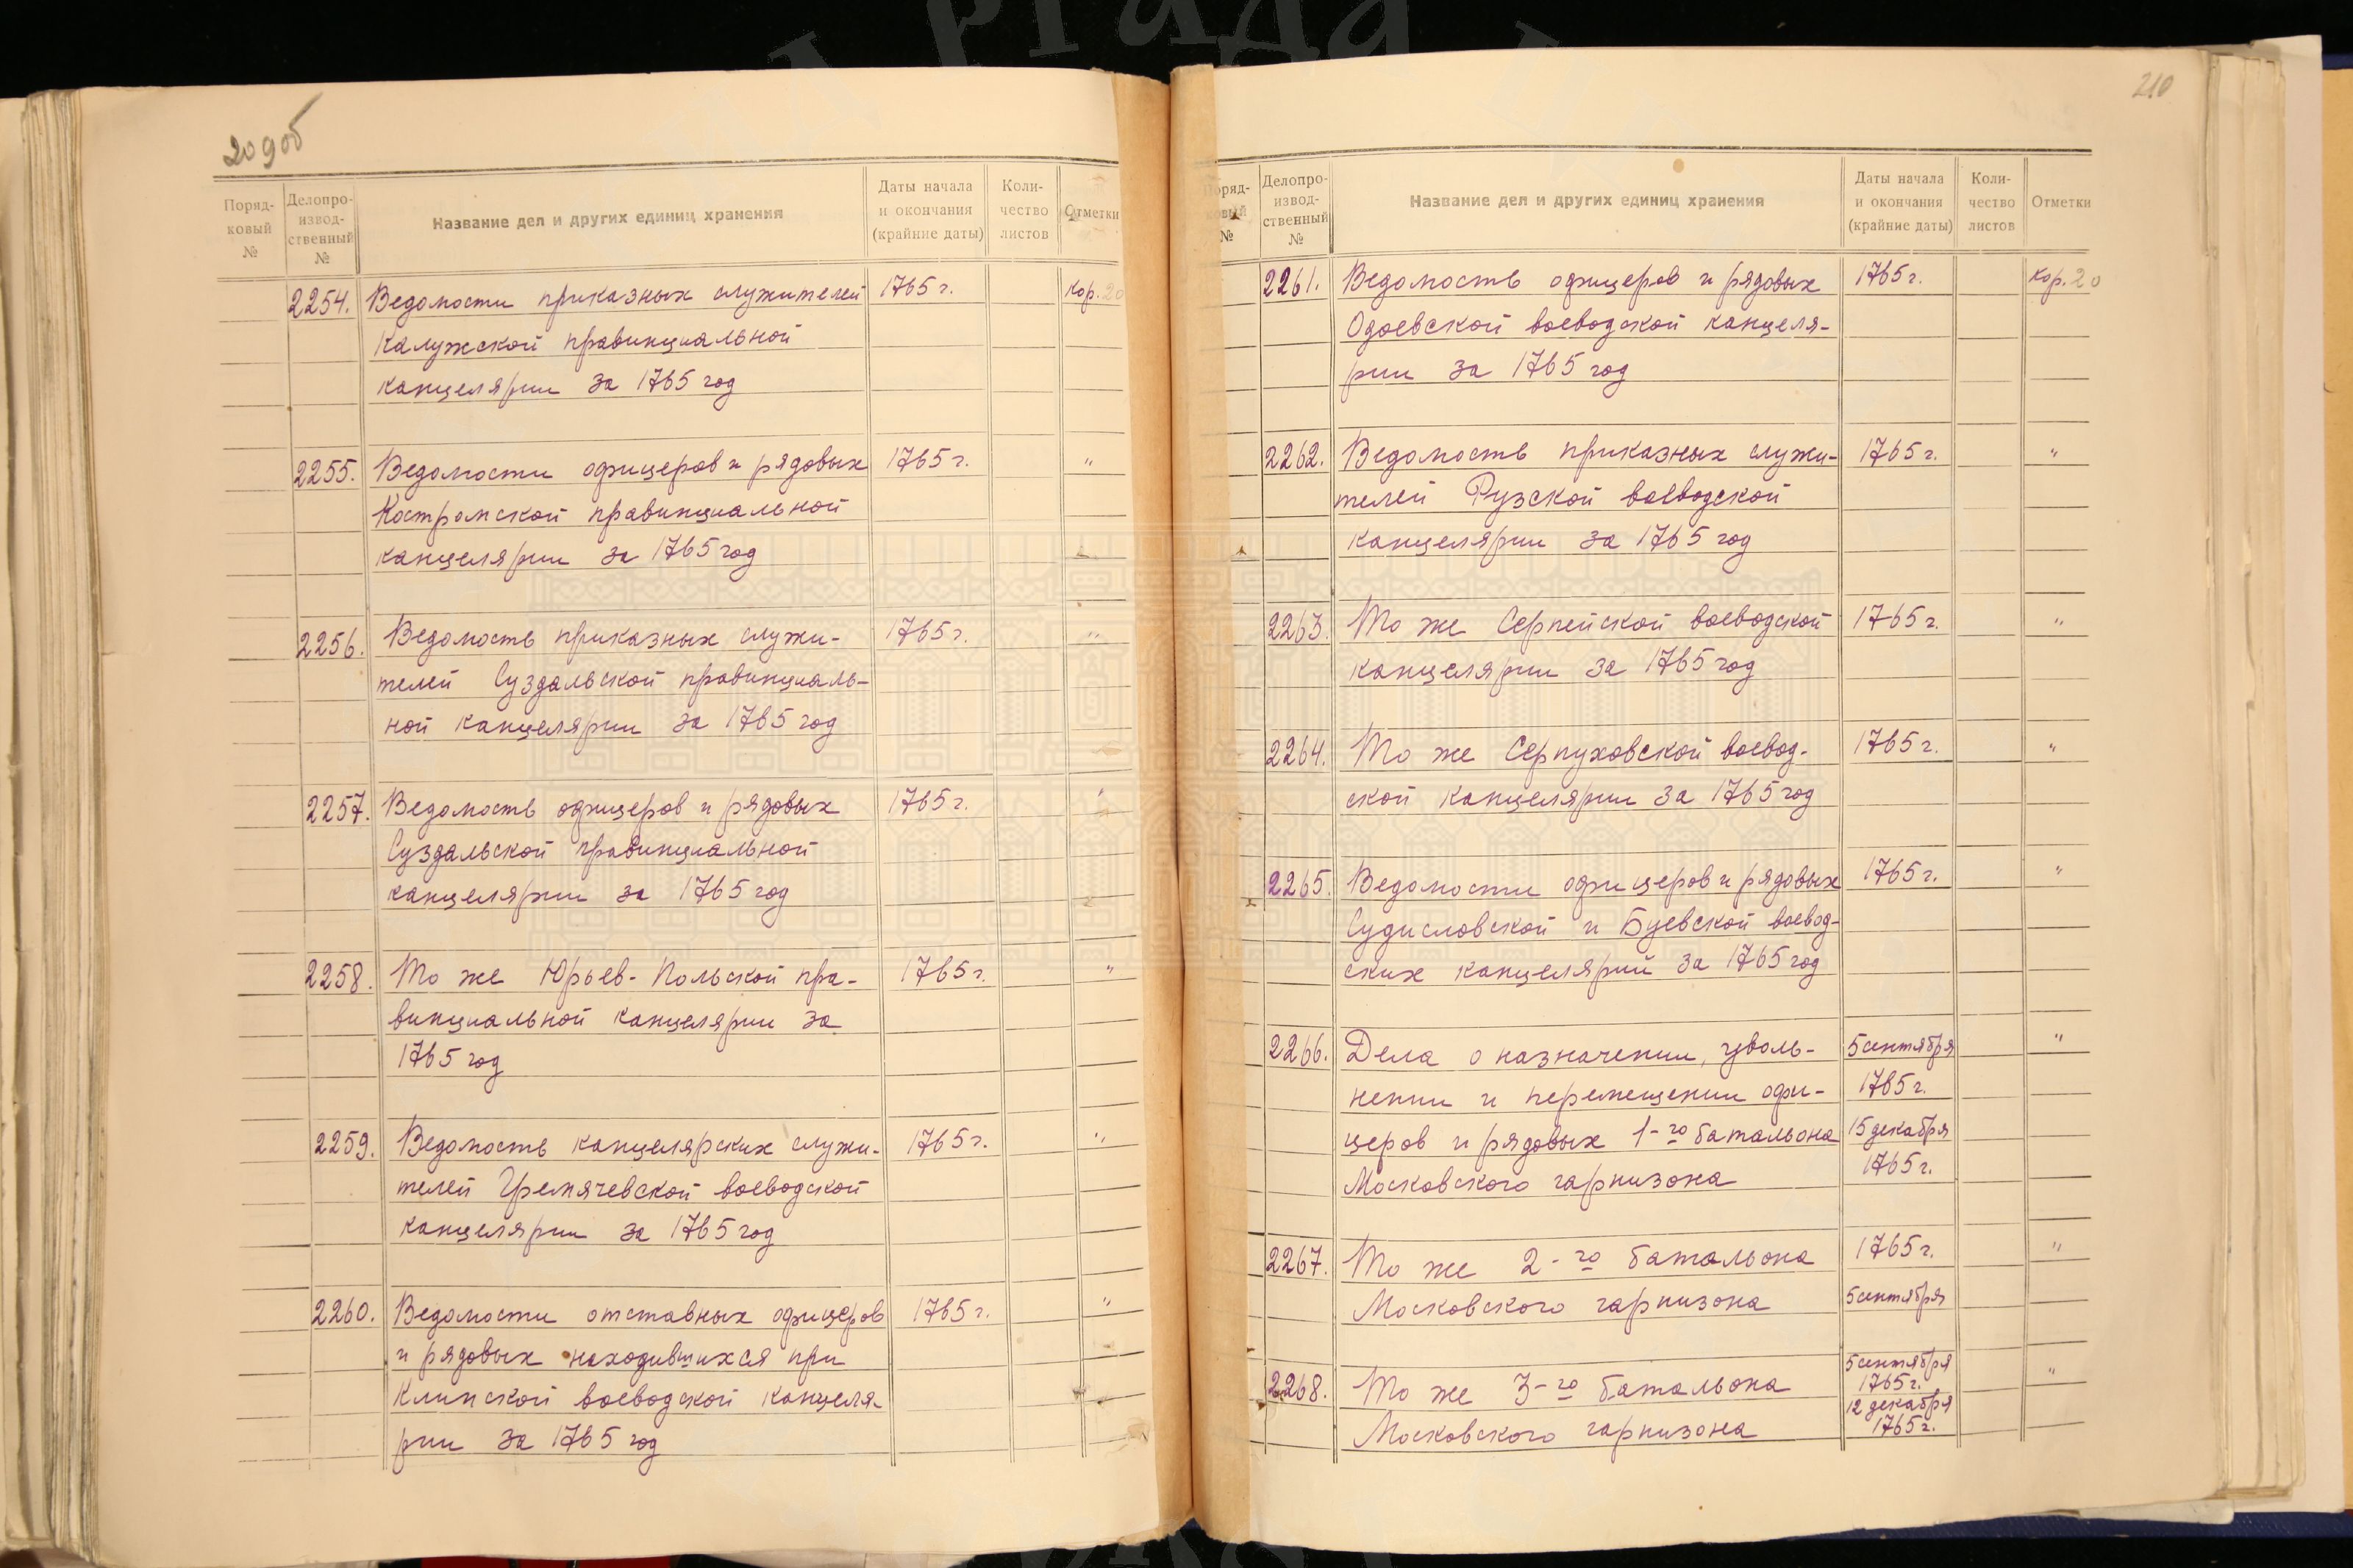 209об
Поряд-
ковый
№
Делопро-
извод-
ственный
№
Название дел и других единиц хранения
Даты начала
и окончания
(крайние даты)
Коли-
чество
листов
Отметки
2254. Ведомости приказных служителей 1765 г. Кор. 20
Калужской правинциальной
канцелярии за 1765 год
2255. Ведомости офицеров и рядовых 1765 г. "
Костромской правинциальной
канцелярии за 1765 год
2256. Ведомость приказных служи- 1765 г. "
телей Суздальской правинциаль-
ной канцелярии за 1765 год
2257. Ведомость офицеров и рядовых 1765 г. "
Суздальской правинциальной
канцелярии за 1765 год
2258. То же Юрьев-Польской пра- 1765 г. "
винциальной канцелярии за
1765 год
2259. Ведомость канцелярских служи- 1765 г. "
телей Гремячевской воеводской
канцелярии за 1765 год
2260. Ведомости отставных офицеров 1765 г. "
и рядовых находившихся при
Клинской воеводской канцеля-
рии за 1765 год
210
Поряд-
ковый
№
Делопро-
извод-
ственный
№
Название дел и других единиц хранения
Даты начала
и окончания
(крайние даты)
Коли-
чество
листов
Отметки
2261. Ведомость офицеров и рядовых 1765 г. Кор. 20
Одоевской воеводской канцеля-
рии за 1765 год
2262. Ведомость приказных служи- 1765 г. "
телей Рузской воеводской
канцелярии за 1765 год
2263. То же Серпейской воеводской 1765 г. "
канцелярии за 1765 год
2264. То же Серпуховской воевод- 1765 г. "
ской канцелярии за 1765 год
2265. Ведомости офицеров и рядовых 1765 г. "
Судисловской и Буевской воевод-
ских канцелярий за 1765 год
2266. Дела о назначении, уволь- 5 сентября "
нении и перемещении офи- 1765 г.
церов и рядовых 1-го батальона 15 декабря
Московского гарнизона 1765 г.
2267. То же 2-го батальона 1765 г. "
Московского гарнизона 5 сентября
2268. То же 3-го батальона 5 сентября 1765 г. "
Московского гарнизона 12 декабря 1765 г.